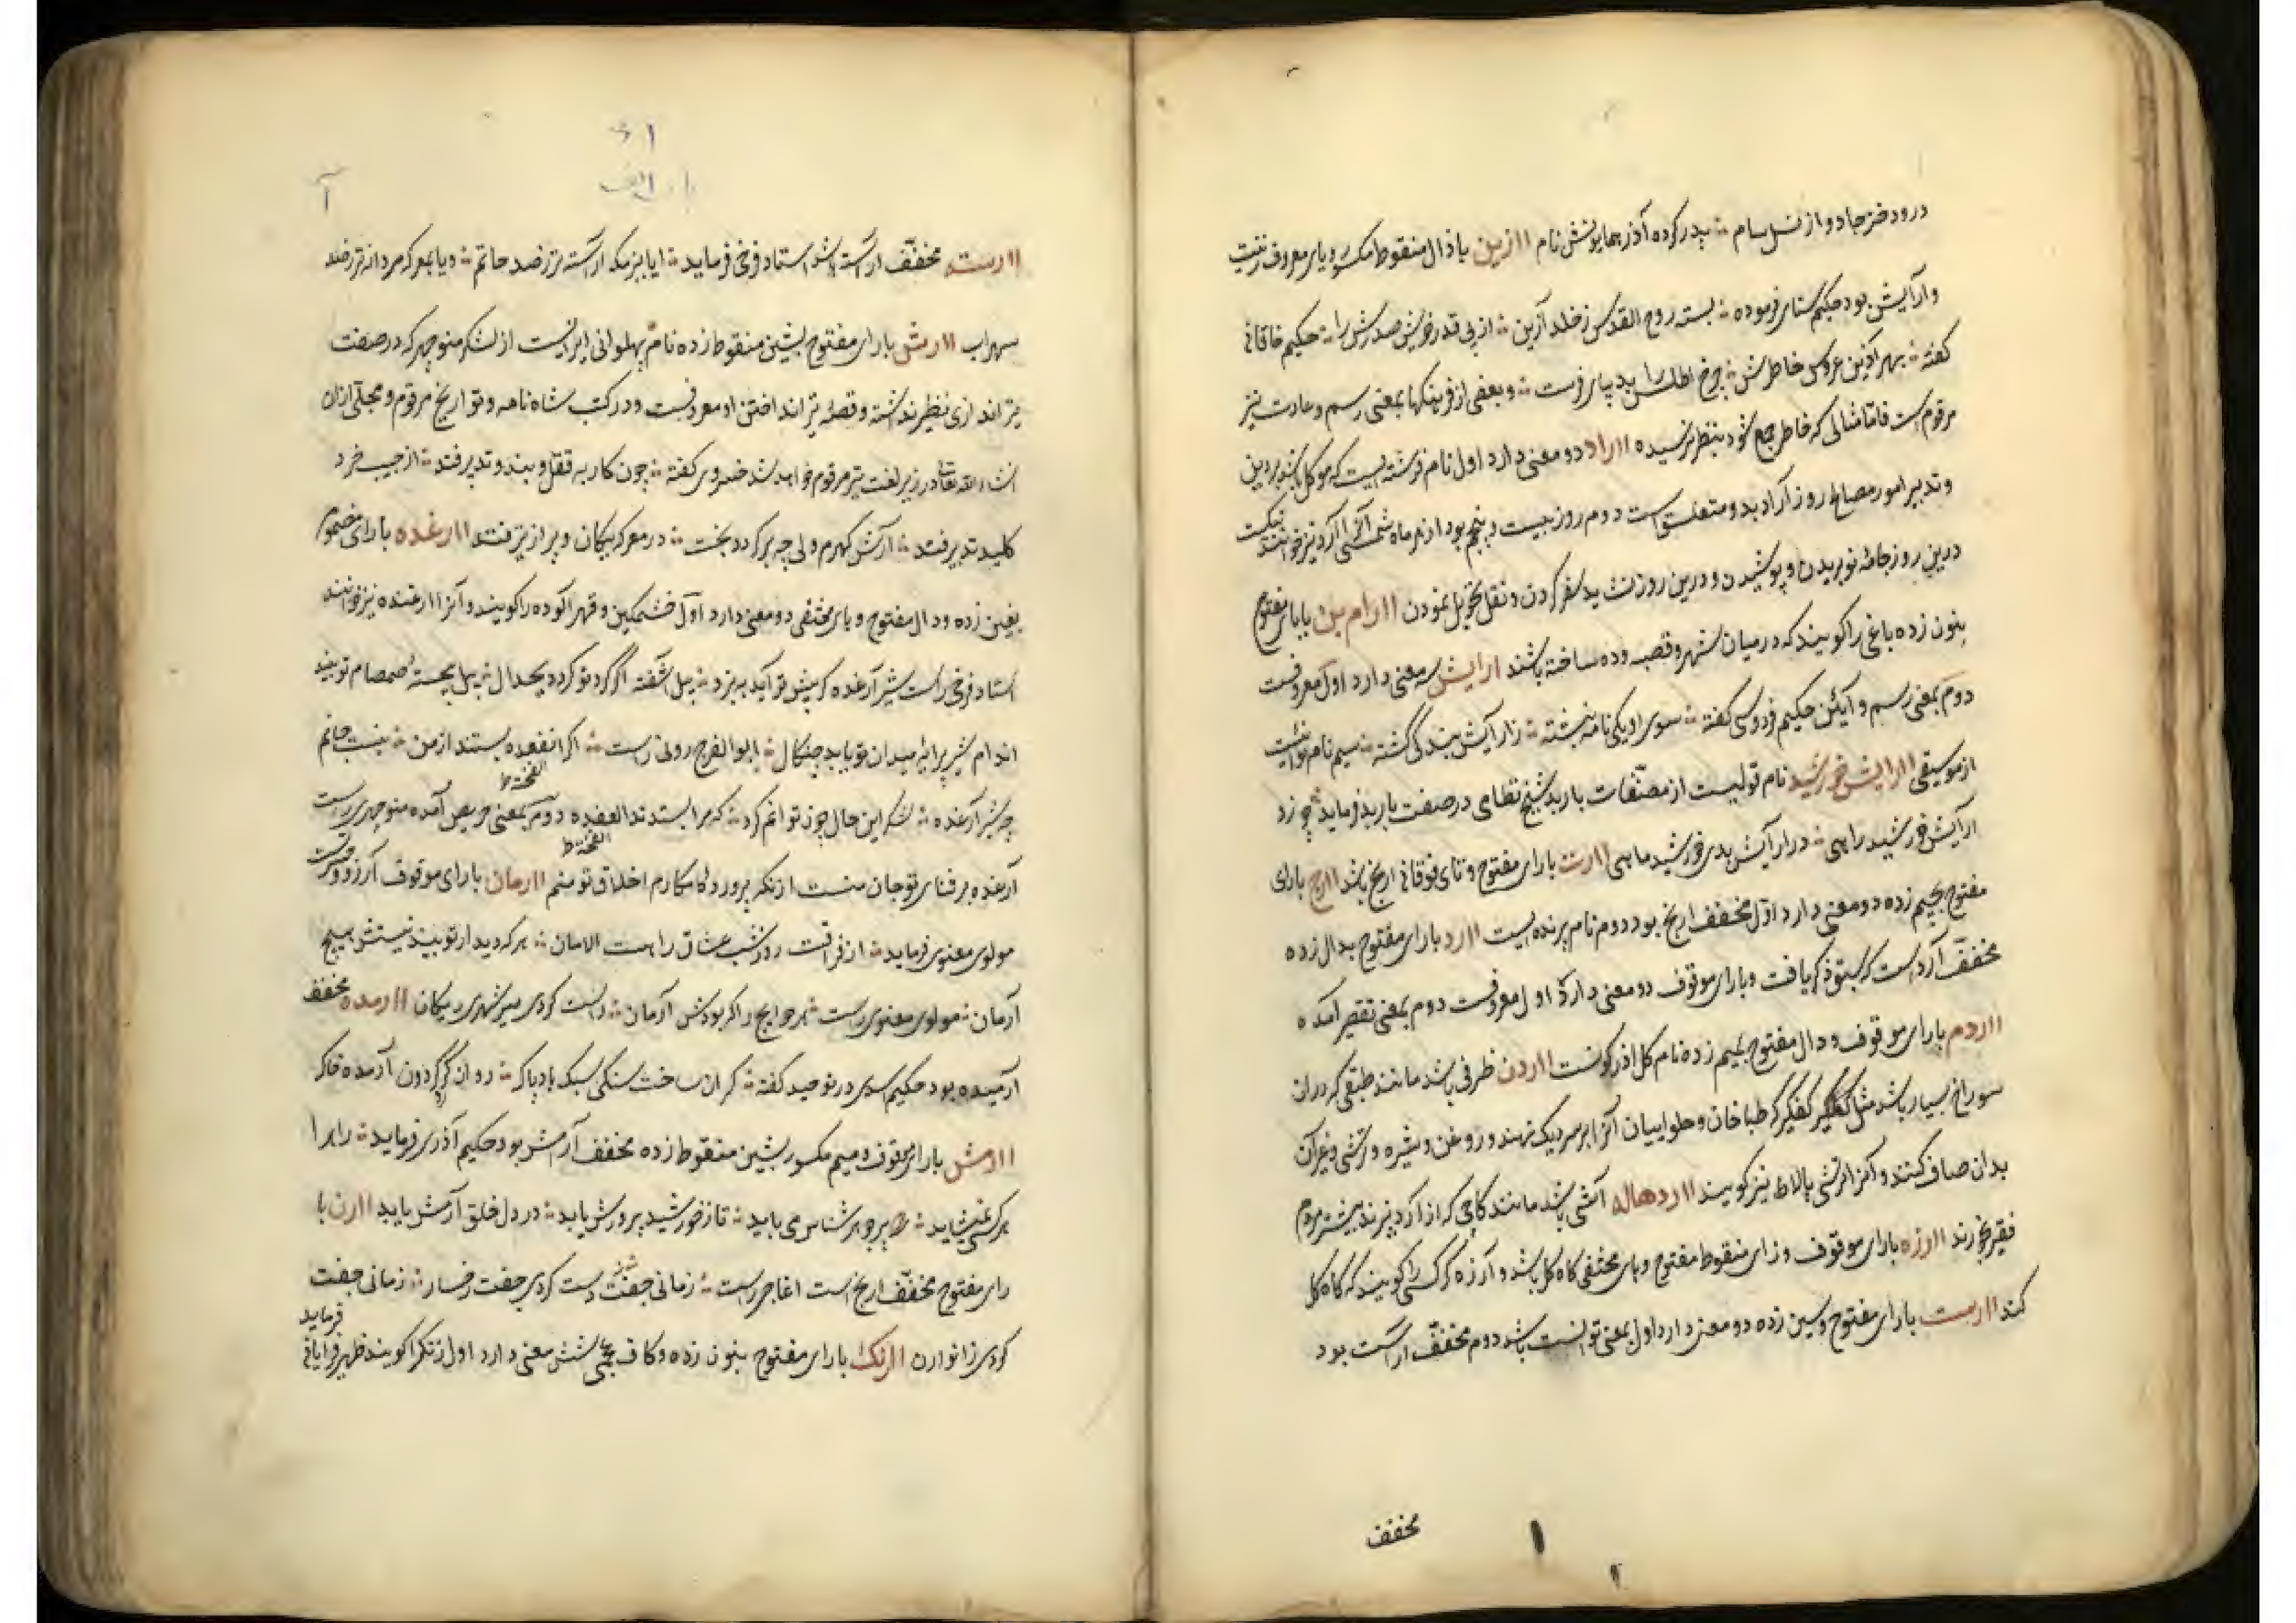 درو دختر جادو از نسل سام ؞ پدر کرده آذر همایونش نام اا ازین با ذال منقوط مکسور و یای معروف زینت
و آرایش بود حکیم سنای فرموده ؞ بسته روح القدس ز خلد آزین ؞ از پی قدر خویش صدرش را ؞ حکیم خاقانی
گفته ؞ بهر آذین عروس خاطرش ؞ چرخ اطلس را بدیبای فرست ؞ و بعضی از فرهنگها بمعنی رسم و عادت نیز
مرقوم است فاما مثالی که خاطر جمع شود بنظر نرسیده اا اراد دو معنی دارد اول نام فرشته ایست که موکل باشد بر دین
و تدبیر امور مصالح روز آراد بدو متعلق است دوم روز بیست و پنجم بود از هر ماه شمسی آنرا آرد نیز خوانند نیکست
درین روز جامهٔ نو بریدن و پوشیدن و درین روز نشاید سفر کردن و نقل و تحویل نمودن اا ارام بن با بای مفتوح
بنون زده باغی را گویند که در میان شهر و قصبه و ده ساخته باشند ارایش سه معنی دارد اول معروفست
دوم بمعنی رسم و آیین حکیم فردوسی گفته ؞ سوی او یکی نامه بنبشته ؞ ز آرایش بندگی گشته ؞ سیم نام نوائیست
از موسیقی اا ارایش خورشید نام نولیست از مصنفات باربد شیخ نظامی در صفت باربد فرماید ؞ چو زد
آرایش خورشید راهی ؞ در آرایش بدی خورشید ماهی اا ارت با رای مفتوح و تای فوقانی ارنج باشد اا ارج با رای
مفتوح بجیم زده دو معنی دارد اول مخفف ارنج بود دوم نام پرنده ایست اا ارد با رای مفتوح بدال زده
مخفف آراد است که سبق ذکر یافت و با رای موقوف دو معنی دارد اول معروفست دوم بمعنی تقصیر آمده
اا اردم با رای موقوف و دال مفتوح بمیم زده نام کل اذرکونست اا اردن ظرفی باشد مانند طبقی که در ان
سوراخ بسیار باشد مثل کفگیر که طباخان و حلواییان آنرا بر سر دیک نهند و روغن و شیره و ترشی و غیر آن
بدان صاف کنند و آنرا ترشی پالا نیز گویند اا اردهاله آشی باشد مانند کاچی که از آرد پزند بیشتر مردم
فقیر خورند اا ارزه با رای موقوف و زای منقوط مفتوح و های مختفی کاه کل باشد و آرزه گر کسی را گویند که کاه کل
کند اا ارست با رای مفتوح و سین زده دو معنی دارد اول بمعنی توانست باشد دوم مخفف آراست بود
مخفف
اا ارسته مخفف آراسته باشد استاد فرخی فرماید ؞ ایا ببزمگه آراسته تر از صد حاتم ؞ و یا بمعرکه مردانه تر ز صد
سهراب اا ارش با رای مفتوح بشین منقوط زده نام پهلوانی ایرانیست از لشکر منوچهر که در صفت
تیر اندازی نظیر نداشته و قصهٔ تیر انداختن او معروفست و در کتب شاه نامه و تواریخ مرقوم و مجملی از ان
انشاء الله تعالی در زیر لغت تیر مرقوم خواهد شد خسروی گفته ؞ چون کار به قفل و بند و تدبیر فتد ؞ از جیب خرد
کلید تدبیر فتد ؞ آرش گهرم ولی چه برگردد بخت ؞ در معرکه پیکان و پر از تیر فتد اا ارغده با رای مضموم
بغین زده و دال مفتوح و های مختفی دو معنی دارد اول خشمگین و قهرآلوده را گویند و آنرا ارغنده نیز خوانند
استاد فرخی راست شیر آرغده که پیش تو آید به نبرد ؞ پیل آشفته اگر گرد تو گردد بجدال ؞ پیل پی خستهٔ صمصام تو بیند
اندام شیر پیرایهٔ میدان تو یابد چنگال ؞ ابوالفرج رونی راست ؞ اگر انفعده بستند از من ؞ بنیت حاتم
چو شیر آرغده ؞ شکر این حال چون توانم کرد ؞ که مرا بستدند الفغده دوم بمعنی حریص آمده منوچهری راست
آرغده بر ثنای تو جان منست از آنکه پرورد کار مکارم اخلاق تو منم اا ارمان با رای موقوف آرزو و حسرت
مولوی معنوی فرماید ؞ از فراقت روز شب عشاق را هست الامان ؞ هر که دیدار تو بیند نیستش هیچ
آرمان ؞ مولوی معنوی راست ؞ هر حوایج را که بودش آرمان ؞ راست کردی میر شهری رایگان اا ارمده مخفف
آرمیده بود حکیم اسدی در توحید گفته ؞ گران ساخت سنگی سبک باد پاک ؞ روان کرد گردون آرمده خاک
اا ارمش با رای موقوف و میم مکسور بشین منقوط زده مخفف آرامش بود حکیم آذری فرماید ؞ راه را
هر کسی نمیشاید ؞ پیر جوهر شناس می باید ؞ تا ز خورشید پرورش یابد ؞ در دل خلق آرمش یابد اا ارن با
رای مفتوح مخفف ارنج است اغاجی راست ؞ زمانی جفت دست کردی جفت رخسار ؞ زمانی جفت
کودی زانو ارن اا ارنک با رای مفتوح بنون زده و کاف عجمی شش معنی دارد اول رنگ را گویند ظهیر فاریابی فرماید